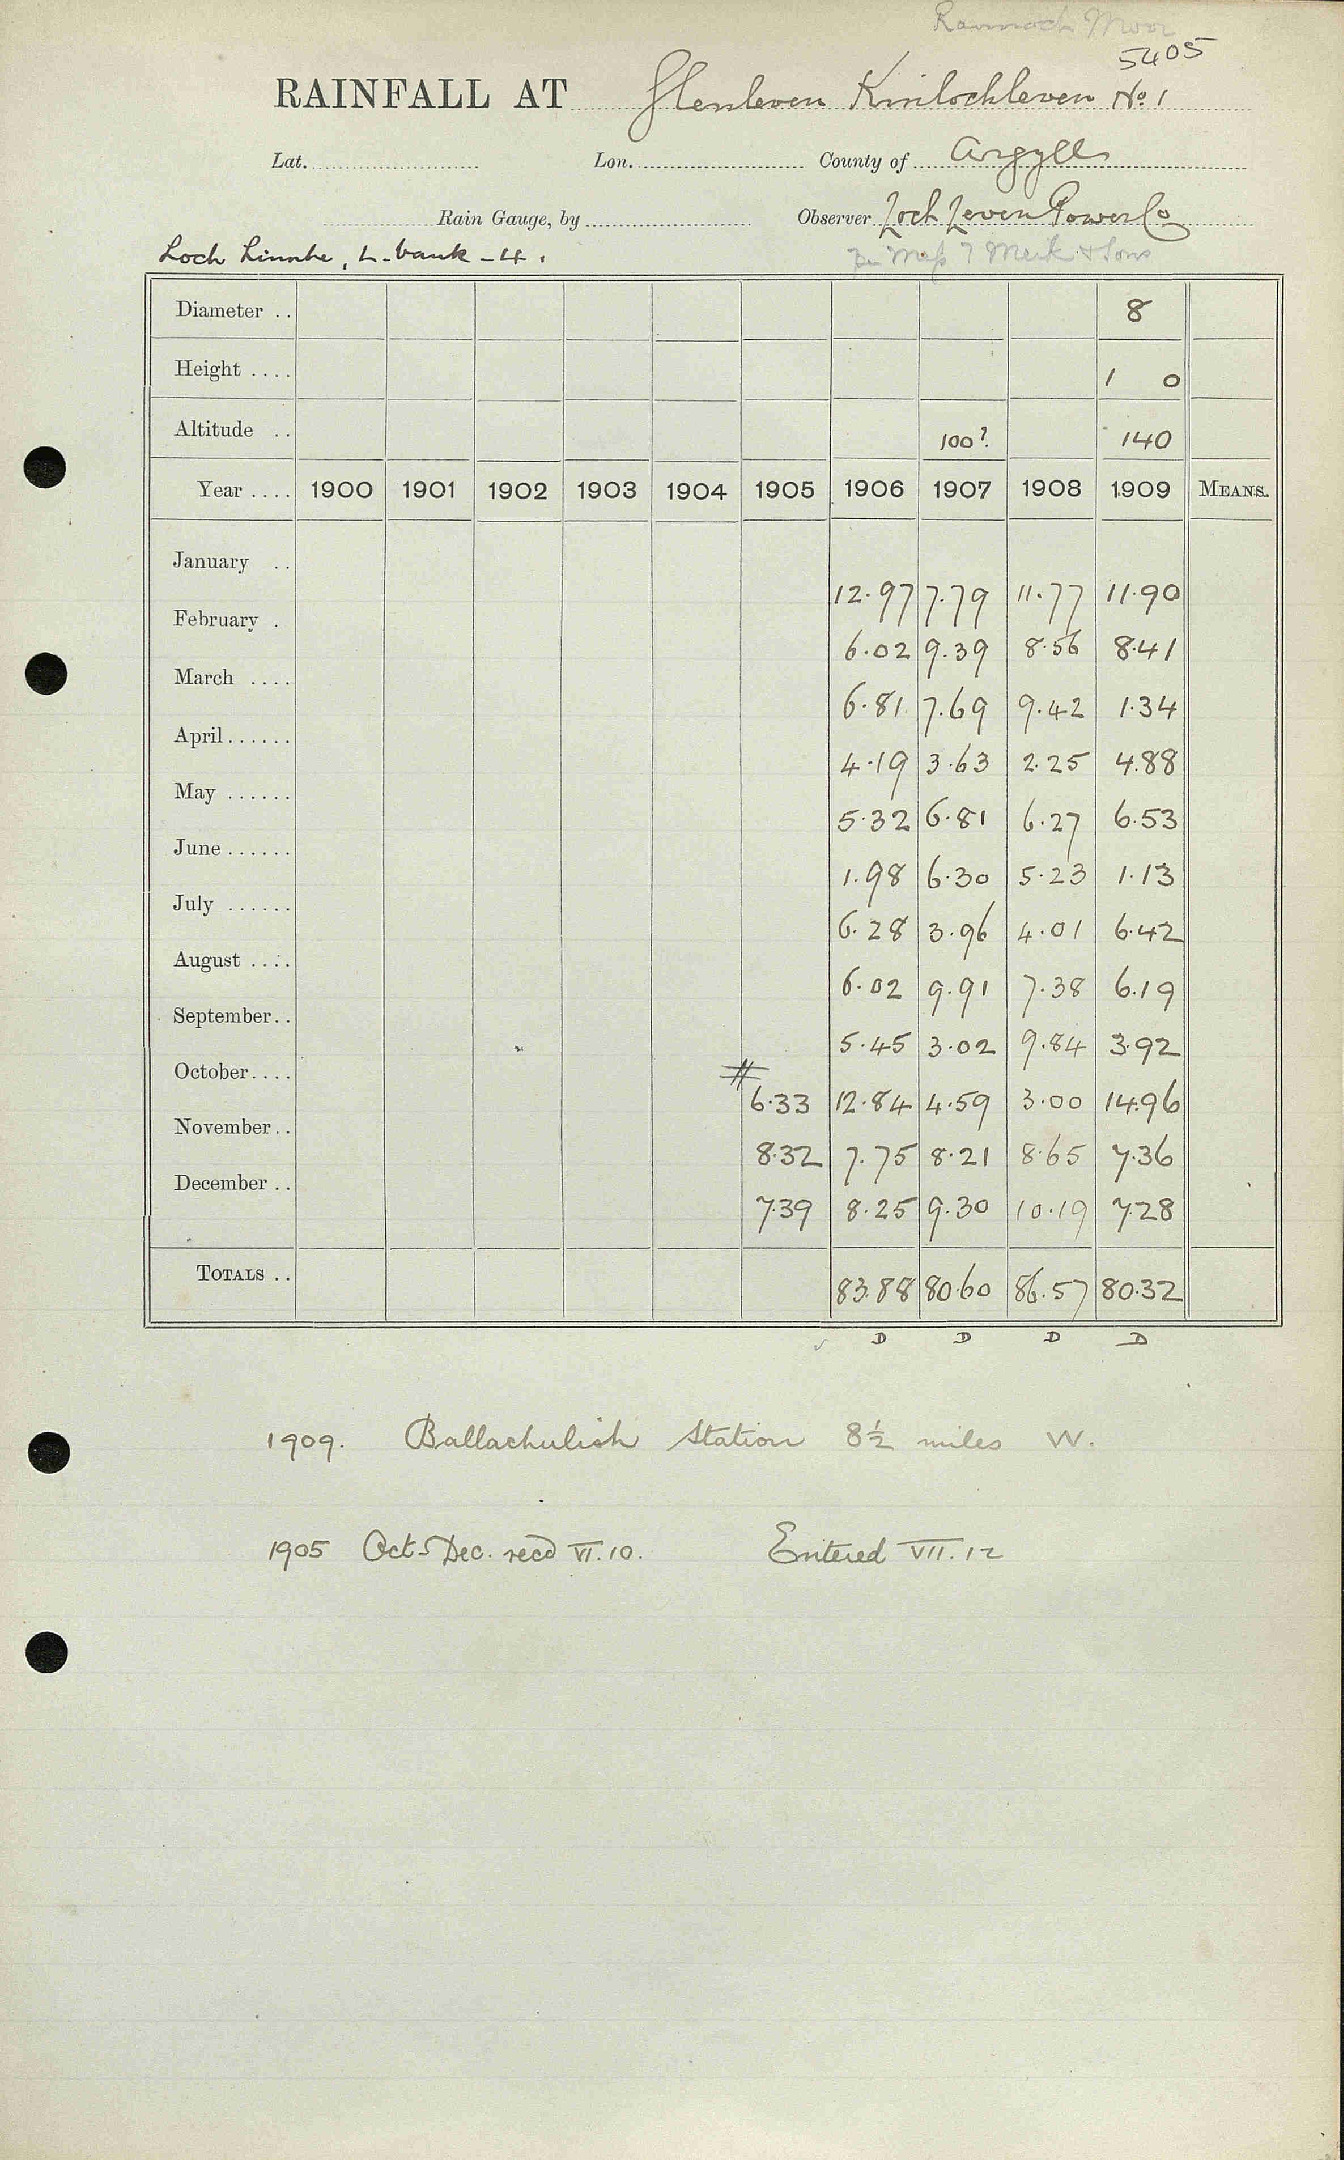 Rannoch Moor
5405
RAINFALL AT Glenleven Kinlochleven No. 1
Lat. Lon. County of Argyll
Rain Gauge, by Observer Loch Leven Power Co
Loch Linnhe, L. bank - 4. 
Meik & Sons
Diameter .. 8
Height .... 1 0
Altitude .. 100? 140
Year .... 1900 1901 1902 1903 1904 1905 1906 1907 1908 1909 MEANS.
January .. 12.97 7.79 11.77 11.90
February . 6.02 9.39 8.56 8.41
March .... 6.81 7.69 9.42 1.34
April...... 4.19 3.63 2.25 4.88
May ...... 5.32 6.81 6.27 6.53
June ...... 1.98 6.30 5.23 1.13
July ...... 6.28 3.96 4.01 6.42
August .... 6.02 9.91 7.38 6.19
September.. 5.45 3.02 9.84 3.92
October.... # 6.33 12.84 4.59 3.00 14.96
November.. 8.32 7.75 8.21 8.65 7.36
December .. 7.39 8.25 9.30 10.19 7.28
TOTALS .. 83.88 80.60 86.57 80.32
D D D D
1909. Ballachulish Station 8½ miles W.
1905 Oct-Dec. recd VI.10. Entered VII.12